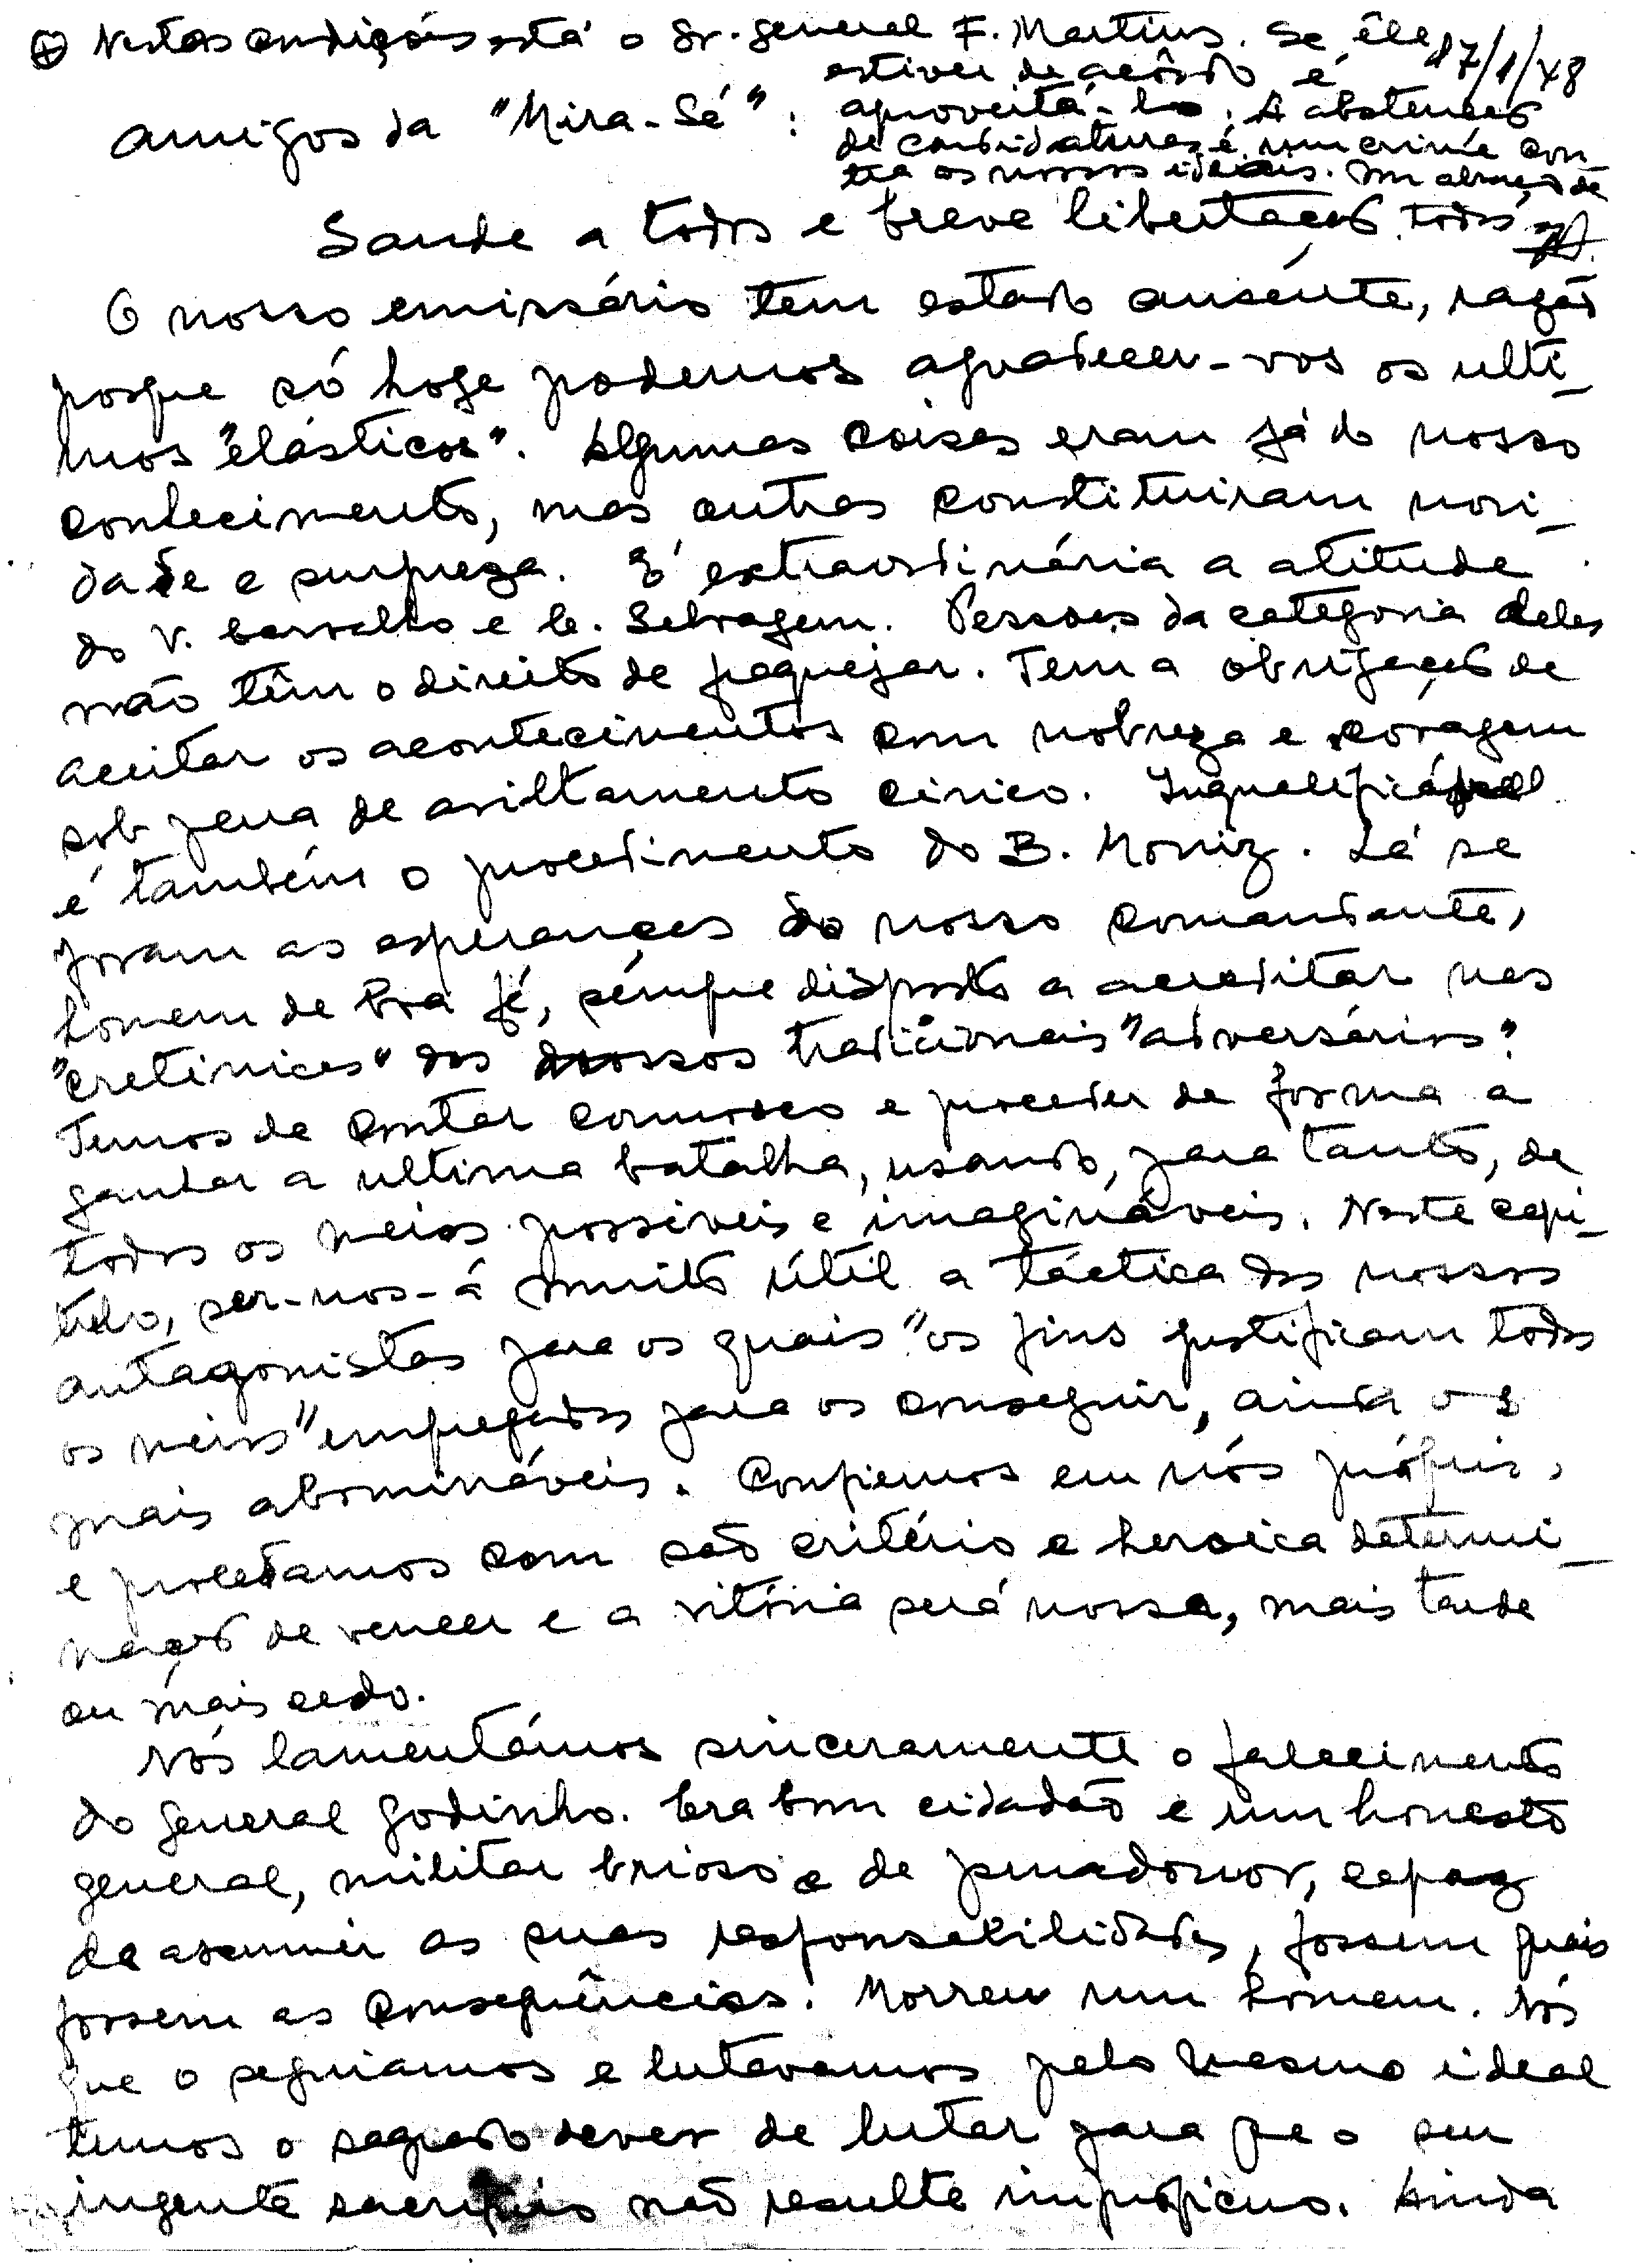 ⊕ Nestas condições está o Sr. general F. Martins. Se êle
estiver de acôrdo é
aproveitá-lo. A abstenção
de candidaturas é um crime con-
tra os nossos ideais. Um abraço de
todos
17/1/48
Amigos da "Mira-Sé":
Saude a todos e breve libertação.
O nosso emissário tem estado ausente, razão
porque só hoge podemos agradecer-vos os ulti-
mos "elásticos". Algumas coisas eram já do nosso
conhecimento, mas outras constituiram novi-
dade e surpreza. É extraordinária a atitude
do V. Carvalho e C. Selvagem. Pessoas da categoria deles
não têm o direito de fraquejar. Tem a obrigação de
aceitar os acontecimentos com nobreza e coragem
sob pena de aviltamento civico. Inqualificável
é também o procedimento do B. Moniz. Lá se
foram as esperanças do nosso comandante,
homem de boa fé, sempre disposto a acreditar nas
"cretinices" dos nossos tradicionais "adversários".
Temos de contar comnosco e proceder de forma a
ganhar a ultima batalha, usando, para tanto, de
todos os meios possiveis e imagináveis. Neste capi-
tulo, ser-nos-á muito útil a táctica dos nossos
antagonistas para os quais "os fins justificam todos
os meios" empregados para os conseguir, ainda os
mais abomináveis. Confiemos em nós próprios,
e procedamos com são critério e heroica determi-
nação de vencer e a vitória será nossa, mais tarde
ou mais cedo.
Nós lamentámos sinceramente o falecimento
do general Godinho. Era bom cidadão e um honesto
general, militar brioso e de pundonor, capaz
de assumir as suas responsabilidades, fossem quais
fossem as consequências. Morreu um homem. Nós
que o seguiamos e lutavamos pelo mesmo ideal
temos o sagrado dever de lutar para que o seu
ingente sacrificio não resulte improficuo. Ainda